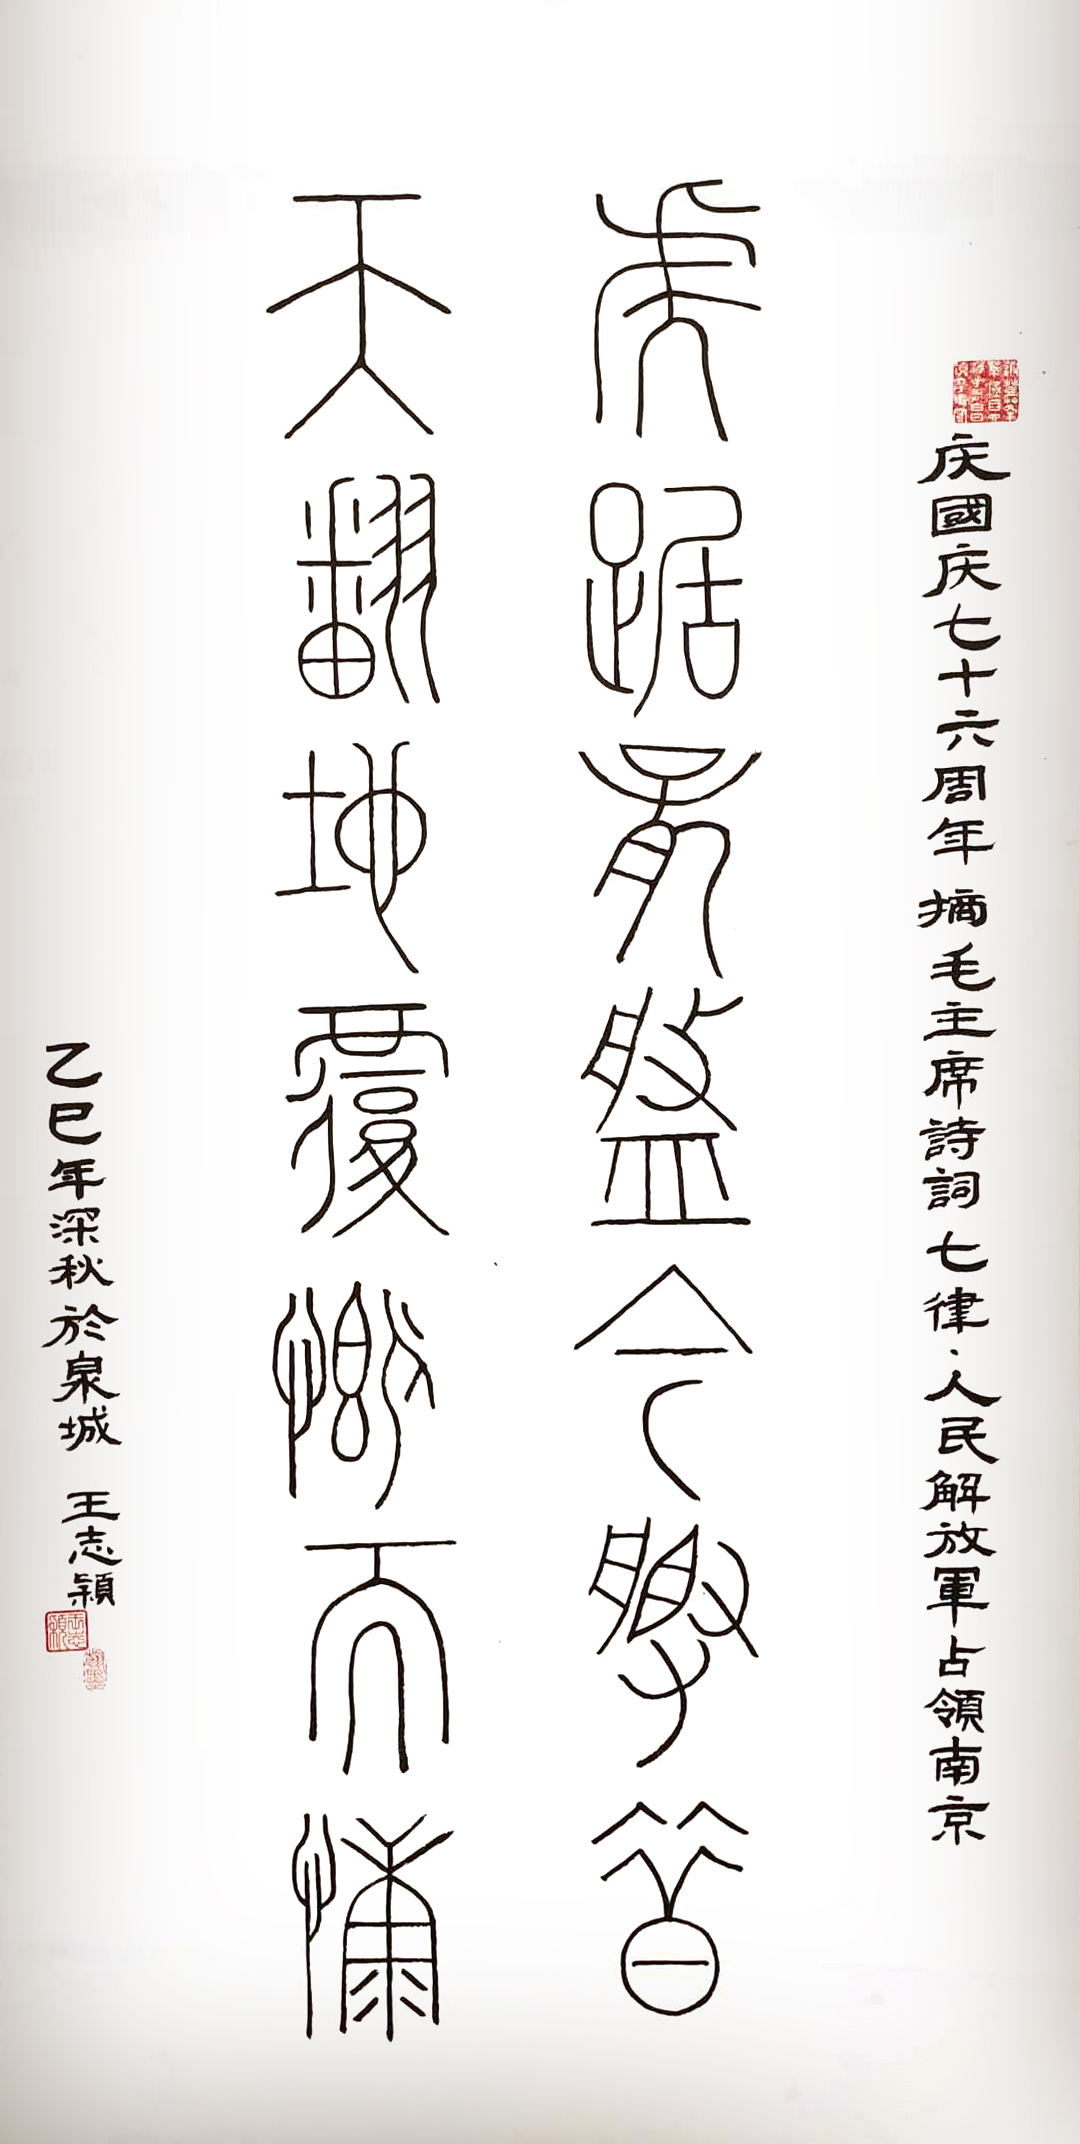 庆國庆七十六周年 摘毛主席詩詞 七律·人民解放軍占領南京
虎踞龍盤今勝昔
天翻地覆慨而慷
乙巳年深秋於泉城 王志穎